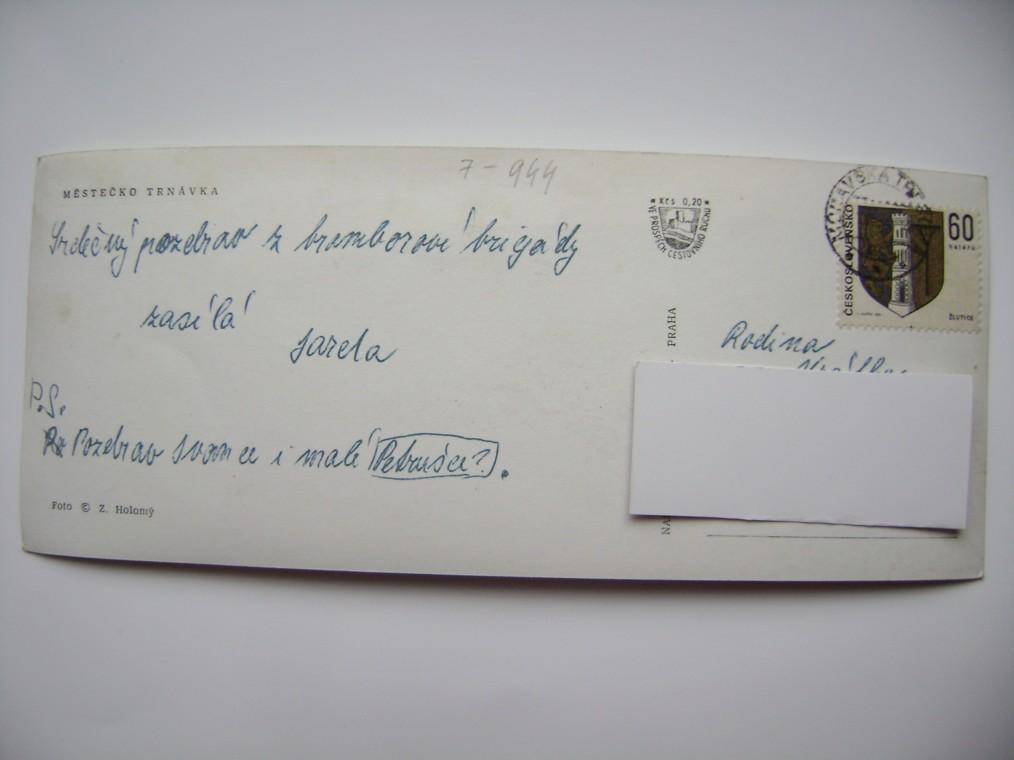 7-944
MĚSTEČKO TRNÁVKA
Srdečný pozdrav z bramborové brigády
zasílá
Jarda
P.S.
Pozdrav Ivance i malé Petrušce?.
Foto © Z. Holomý
* Kčs 0,20 *
VE PROSPĚCH CESTOVNÍHO RUCHU
MORAVSKÁ
ČESKOSLOVENSKO
60
haléřů
ŽLUTICE
PRAHA
Rodina